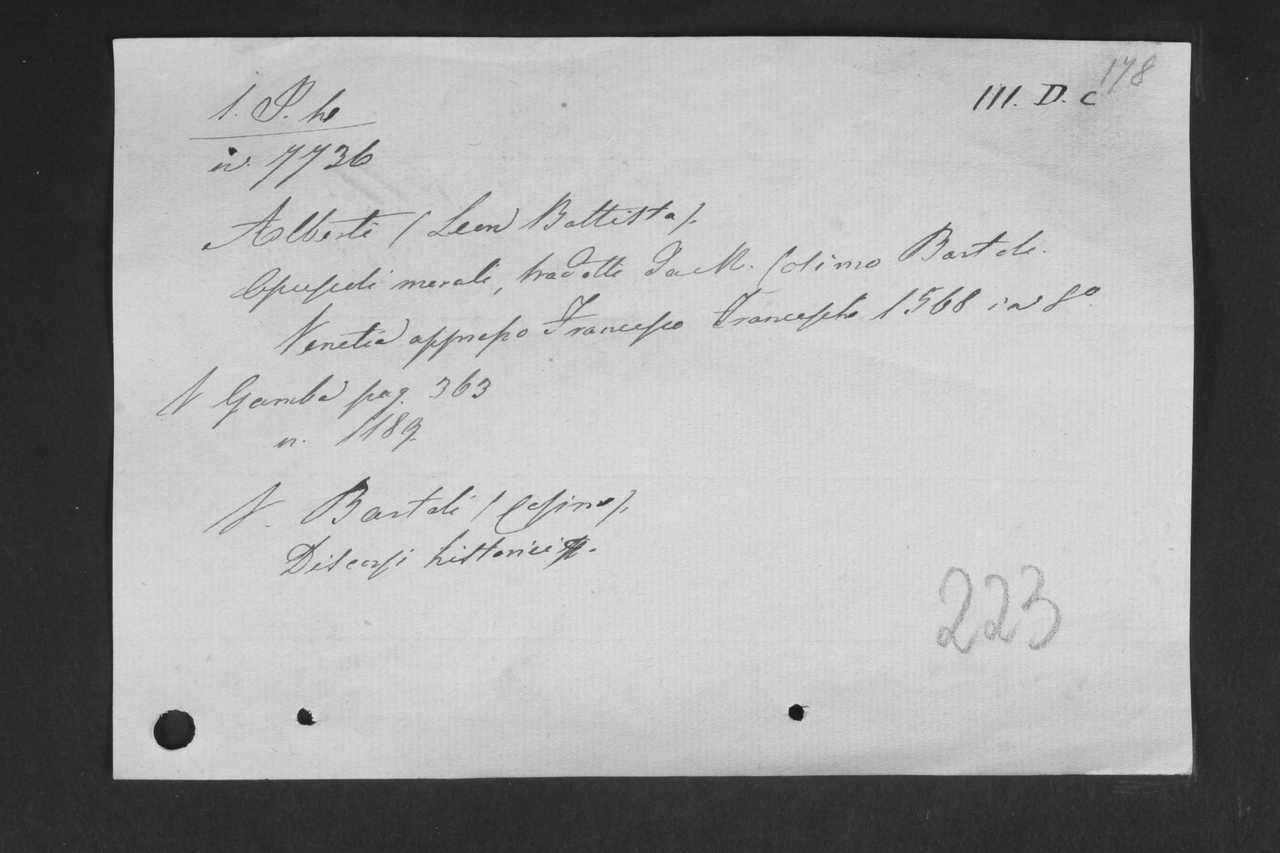 178
III. D. c
1. P. he
n. 7736
Alberti (Leon Battista).
Opuscoli morali, tradotti da M. Cosimo Bartoli.
Venetia appresso Francesco Franceschi 1568 in 8º
V Gamba pag. 363
n. 1189.
V. Bartoli (Cosimo).
Discorsi historici.
223